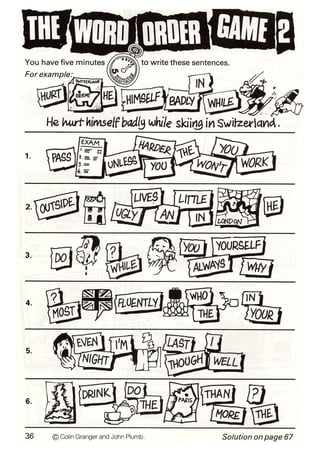 THE WORD ORDER GAME 2
You have five minutes to write these sentences.
For example:
HURT SWITZERLAND HE HIMSELF BADLY IN WHILE
He hurt himself badly while skiing in Switzerland.
1. PASS EXAM UNLESS HARDER YOU THE WON'T YOU WORK
2. OUTSIDE UGLY LIVES AN LITTLE IN LONDON HE
3. DO ? WHILE YOU ALWAYS YOURSELF WHY
4. ? MOST FLUENTLY WHO THE IN YOUR
5. EVEN NIGHT I'M LAST THOUGH I WELL
6. DRINK DO THE PARIS THAN MORE ? THE
36 © Colin Granger and John Plumb. Solution on page 67